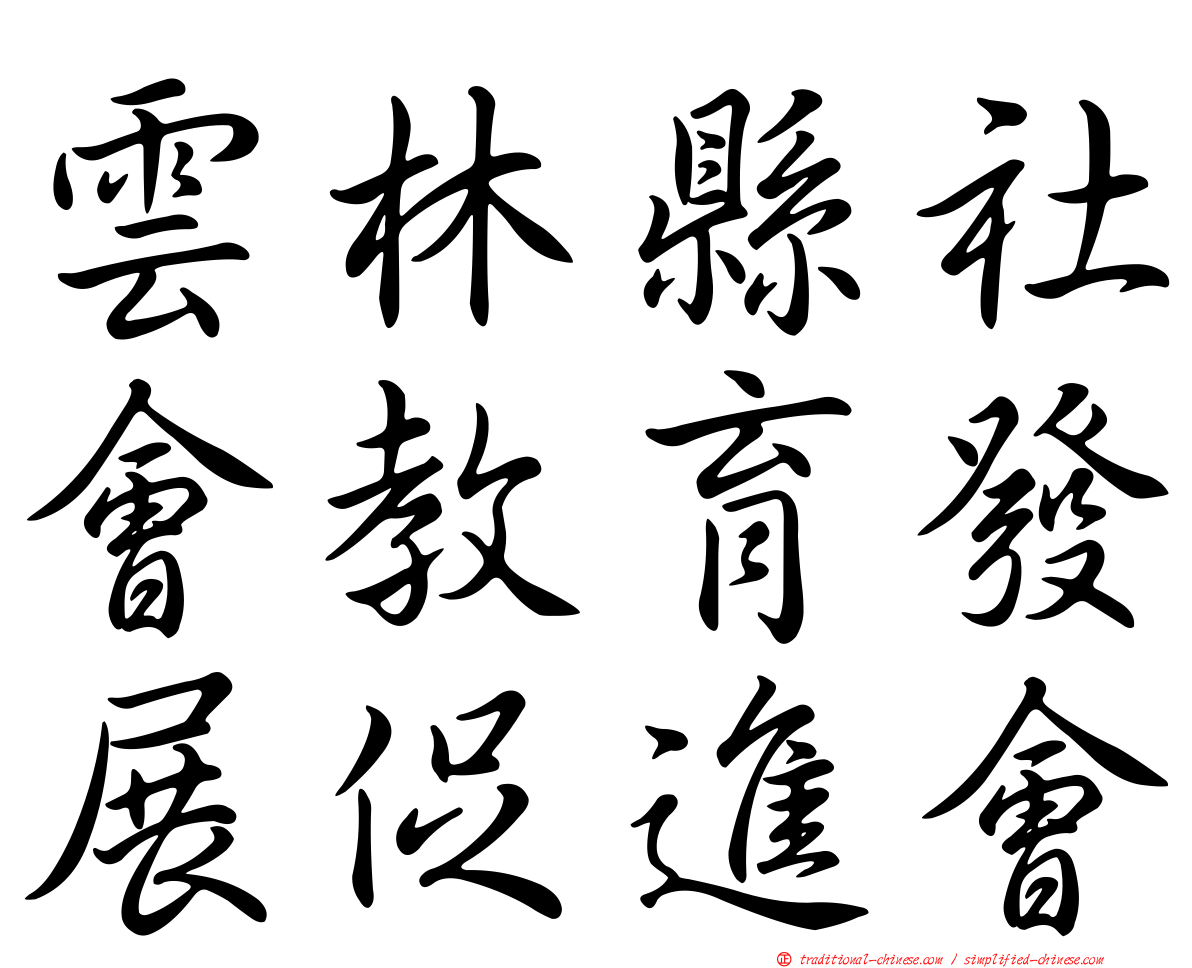 雲林縣社
會教育發
展促進會
㊣ traditional-chinese.com / simplified-chinese.com